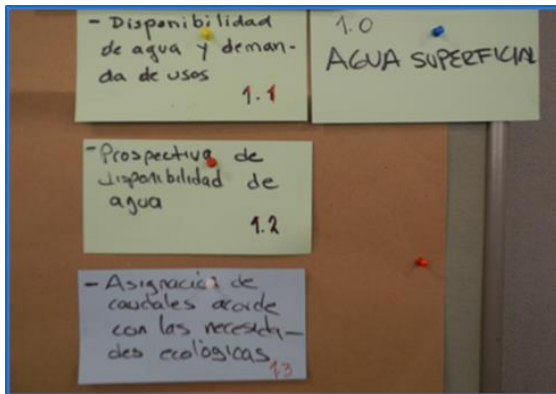 - Disponibilidad
de agua y deman-
da de usos
1.1
1.0
AGUA SUPERFICIAL
- Prospectiva de
disponibilidad de
agua
1.2
- Asignación de
caudales acorde
con las necesida-
des ecológicas
1.3